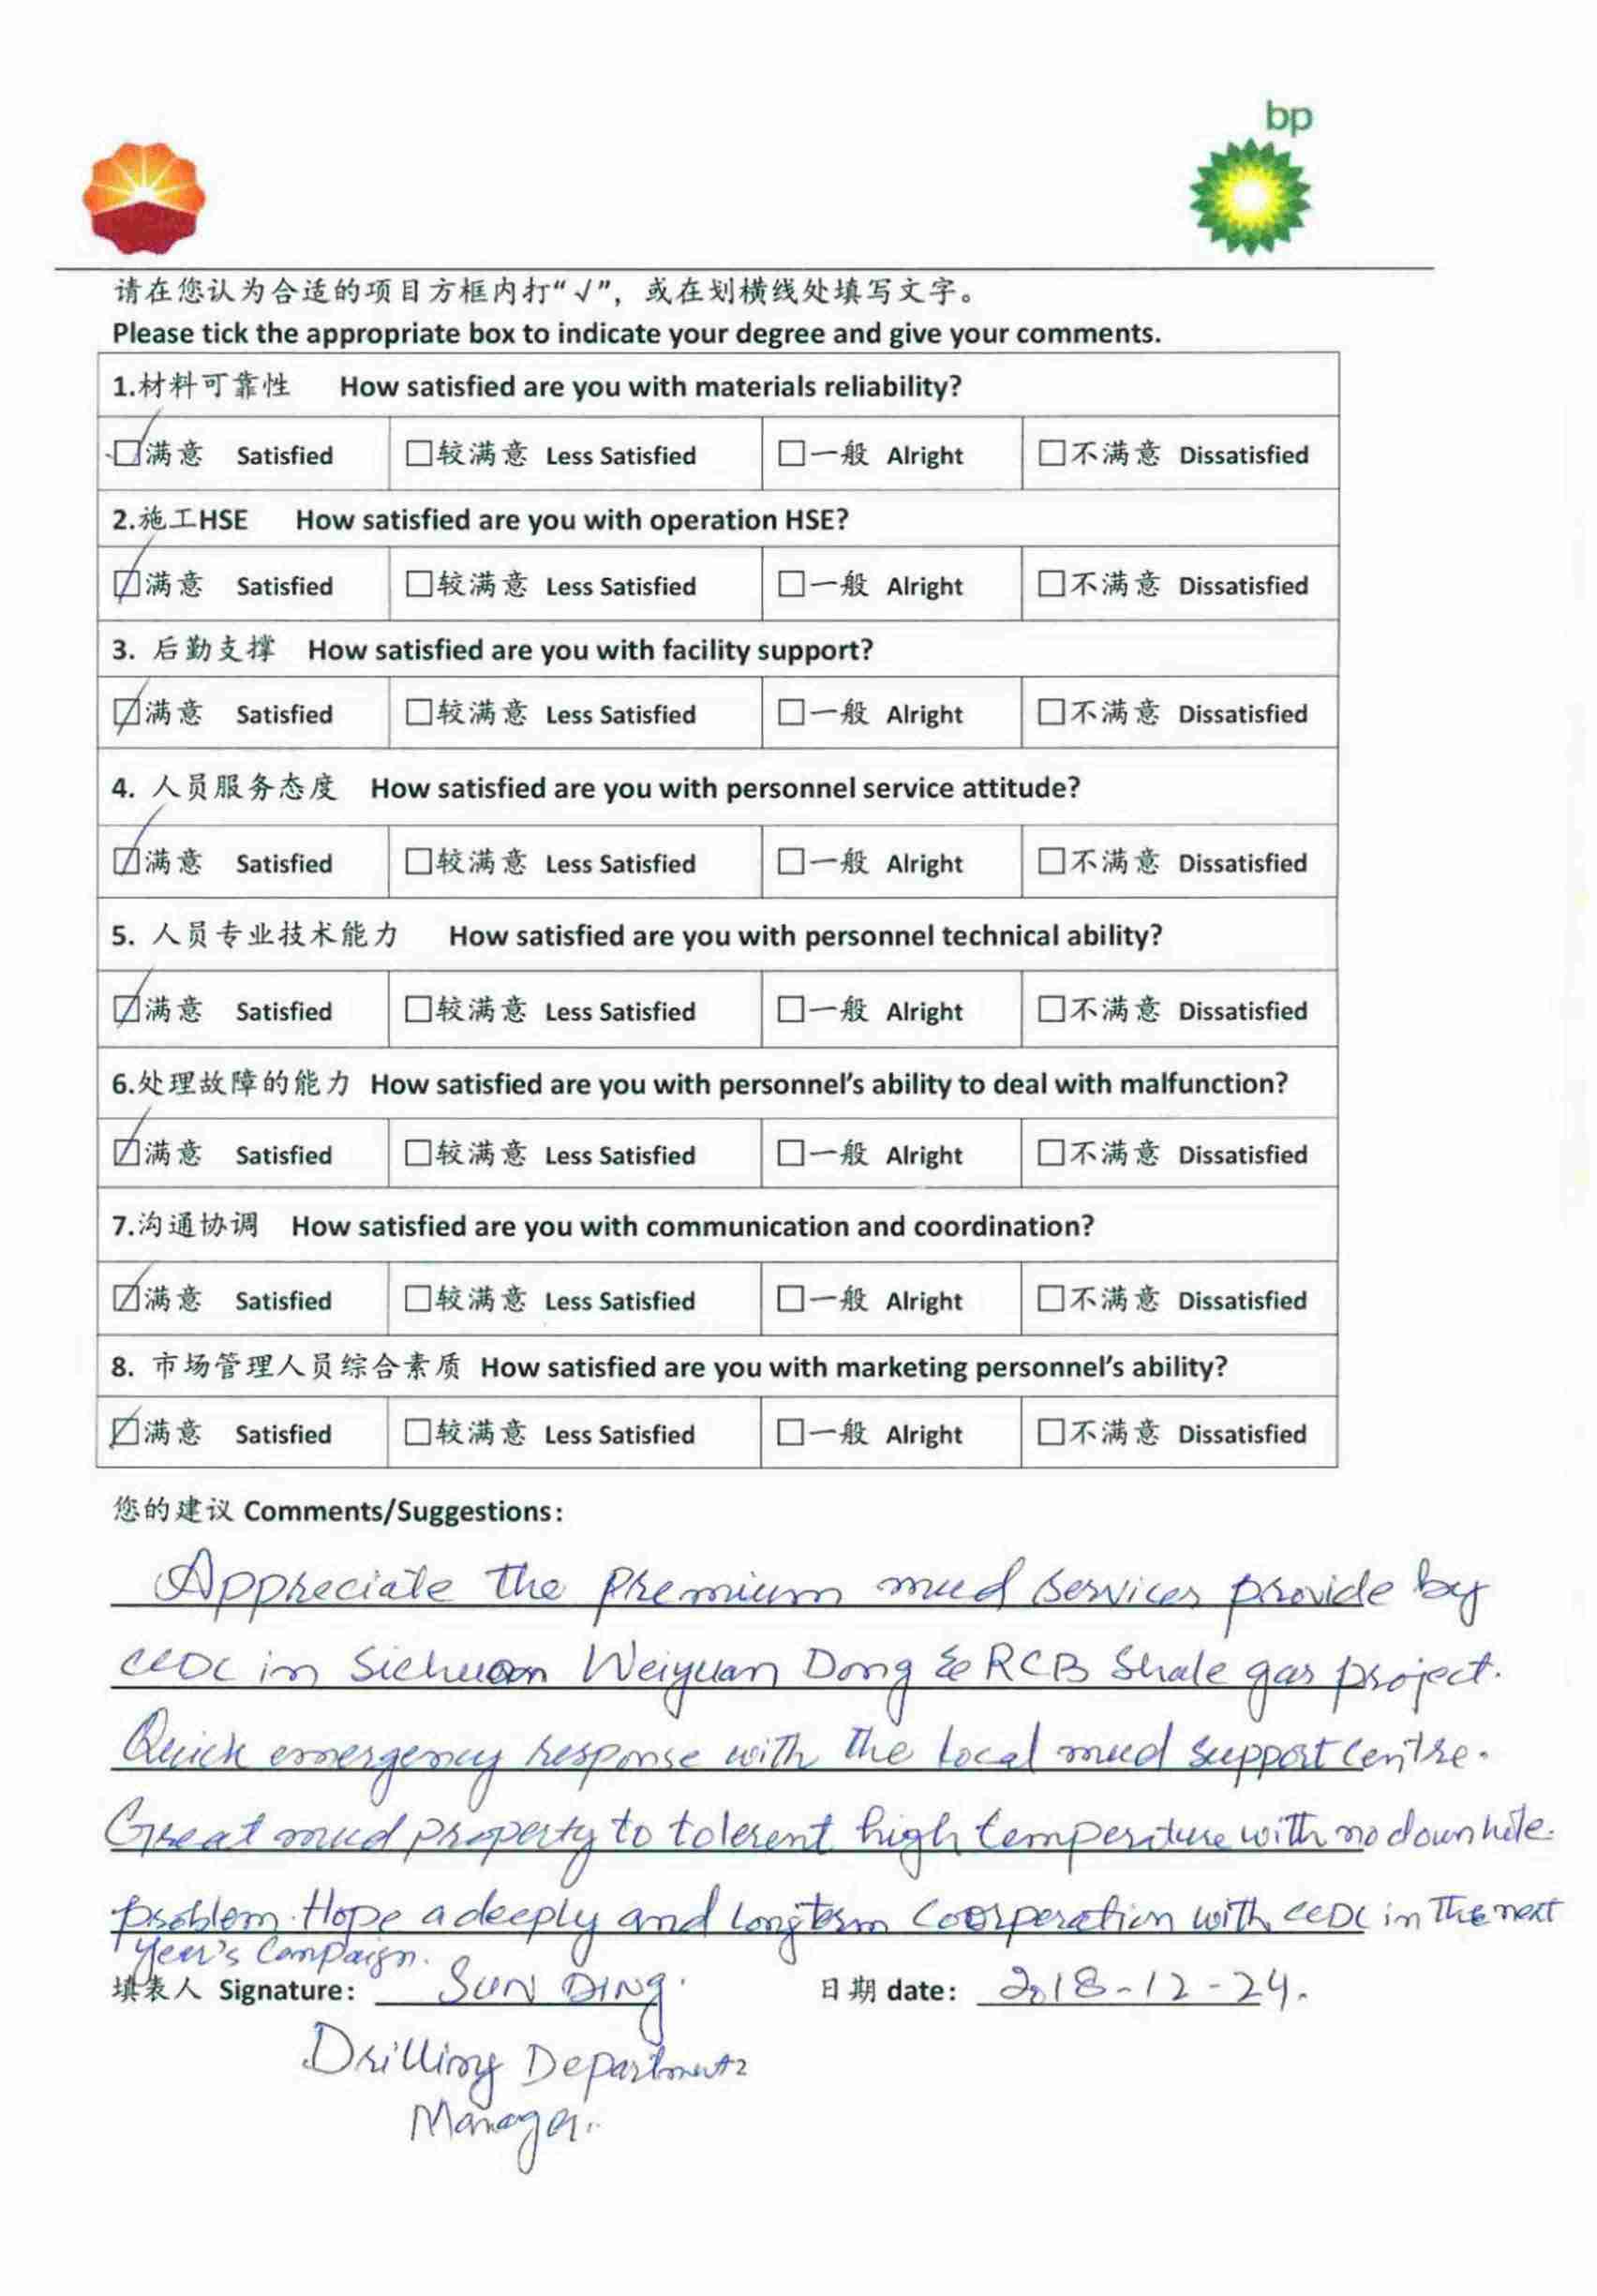 bp
请在您认为合适的项目方框内打“√”，或在划横线处填写文字。
Please tick the appropriate box to indicate your degree and give your comments.
1.材料可靠性 How satisfied are you with materials reliability?
☑满意 Satisfied □较满意 Less Satisfied □一般 Alright □不满意 Dissatisfied
2.施工HSE How satisfied are you with operation HSE?
☑满意 Satisfied □较满意 Less Satisfied □一般 Alright □不满意 Dissatisfied
3. 后勤支撑 How satisfied are you with facility support?
☑满意 Satisfied □较满意 Less Satisfied □一般 Alright □不满意 Dissatisfied
4. 人员服务态度 How satisfied are you with personnel service attitude?
☑满意 Satisfied □较满意 Less Satisfied □一般 Alright □不满意 Dissatisfied
5. 人员专业技术能力 How satisfied are you with personnel technical ability?
☑满意 Satisfied □较满意 Less Satisfied □一般 Alright □不满意 Dissatisfied
6.处理故障的能力 How satisfied are you with personnel's ability to deal with malfunction?
☑满意 Satisfied □较满意 Less Satisfied □一般 Alright □不满意 Dissatisfied
7.沟通协调 How satisfied are you with communication and coordination?
☑满意 Satisfied □较满意 Less Satisfied □一般 Alright □不满意 Dissatisfied
8. 市场管理人员综合素质 How satisfied are you with marketing personnel's ability?
☑满意 Satisfied □较满意 Less Satisfied □一般 Alright □不满意 Dissatisfied
您的建议 Comments/Suggestions:
Appreciate the premium mud services provide by
CCDC in Sichuan Weiyuan Dong & RCB Shale gas project.
Quick emergency response with the local mud support centre.
Great mud property to tolerent high temperature with no down hole
problem. Hope a deeply and longterm Coorperation with CCDC in the next
year's Campaign.
填表人 Signature: SUN DING. 日期 date: 2018-12-24.
Drilling Department
Manager.